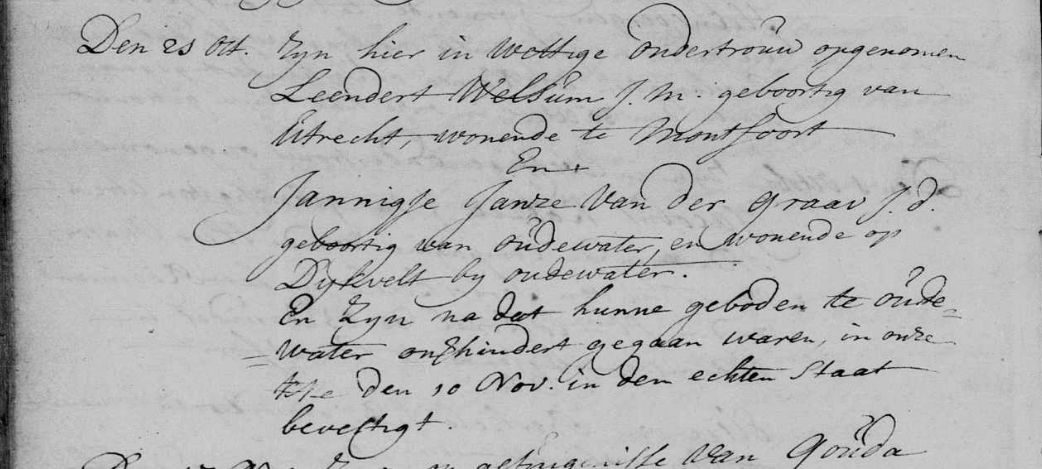 Den 25 Oct. Zyn hier in Wettige ondertrouw opgenomen
Leendert Welsum J. M. geboortig van
Utrecht, wonende te Montfoort
En
Jannigje Janze Van der Graav J. d.
geboortig van oudewater, en wonende op
Dykvelt by oudewater.
En Zyn na dat hunne geboden te oude=
=water onverhindert gegaan waren, in onze
den 10 Nov. in den echten Staat
bevestigt.
Van Gouda